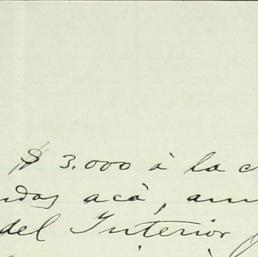 $ 3.000 à la c
das acà, am
del Interior